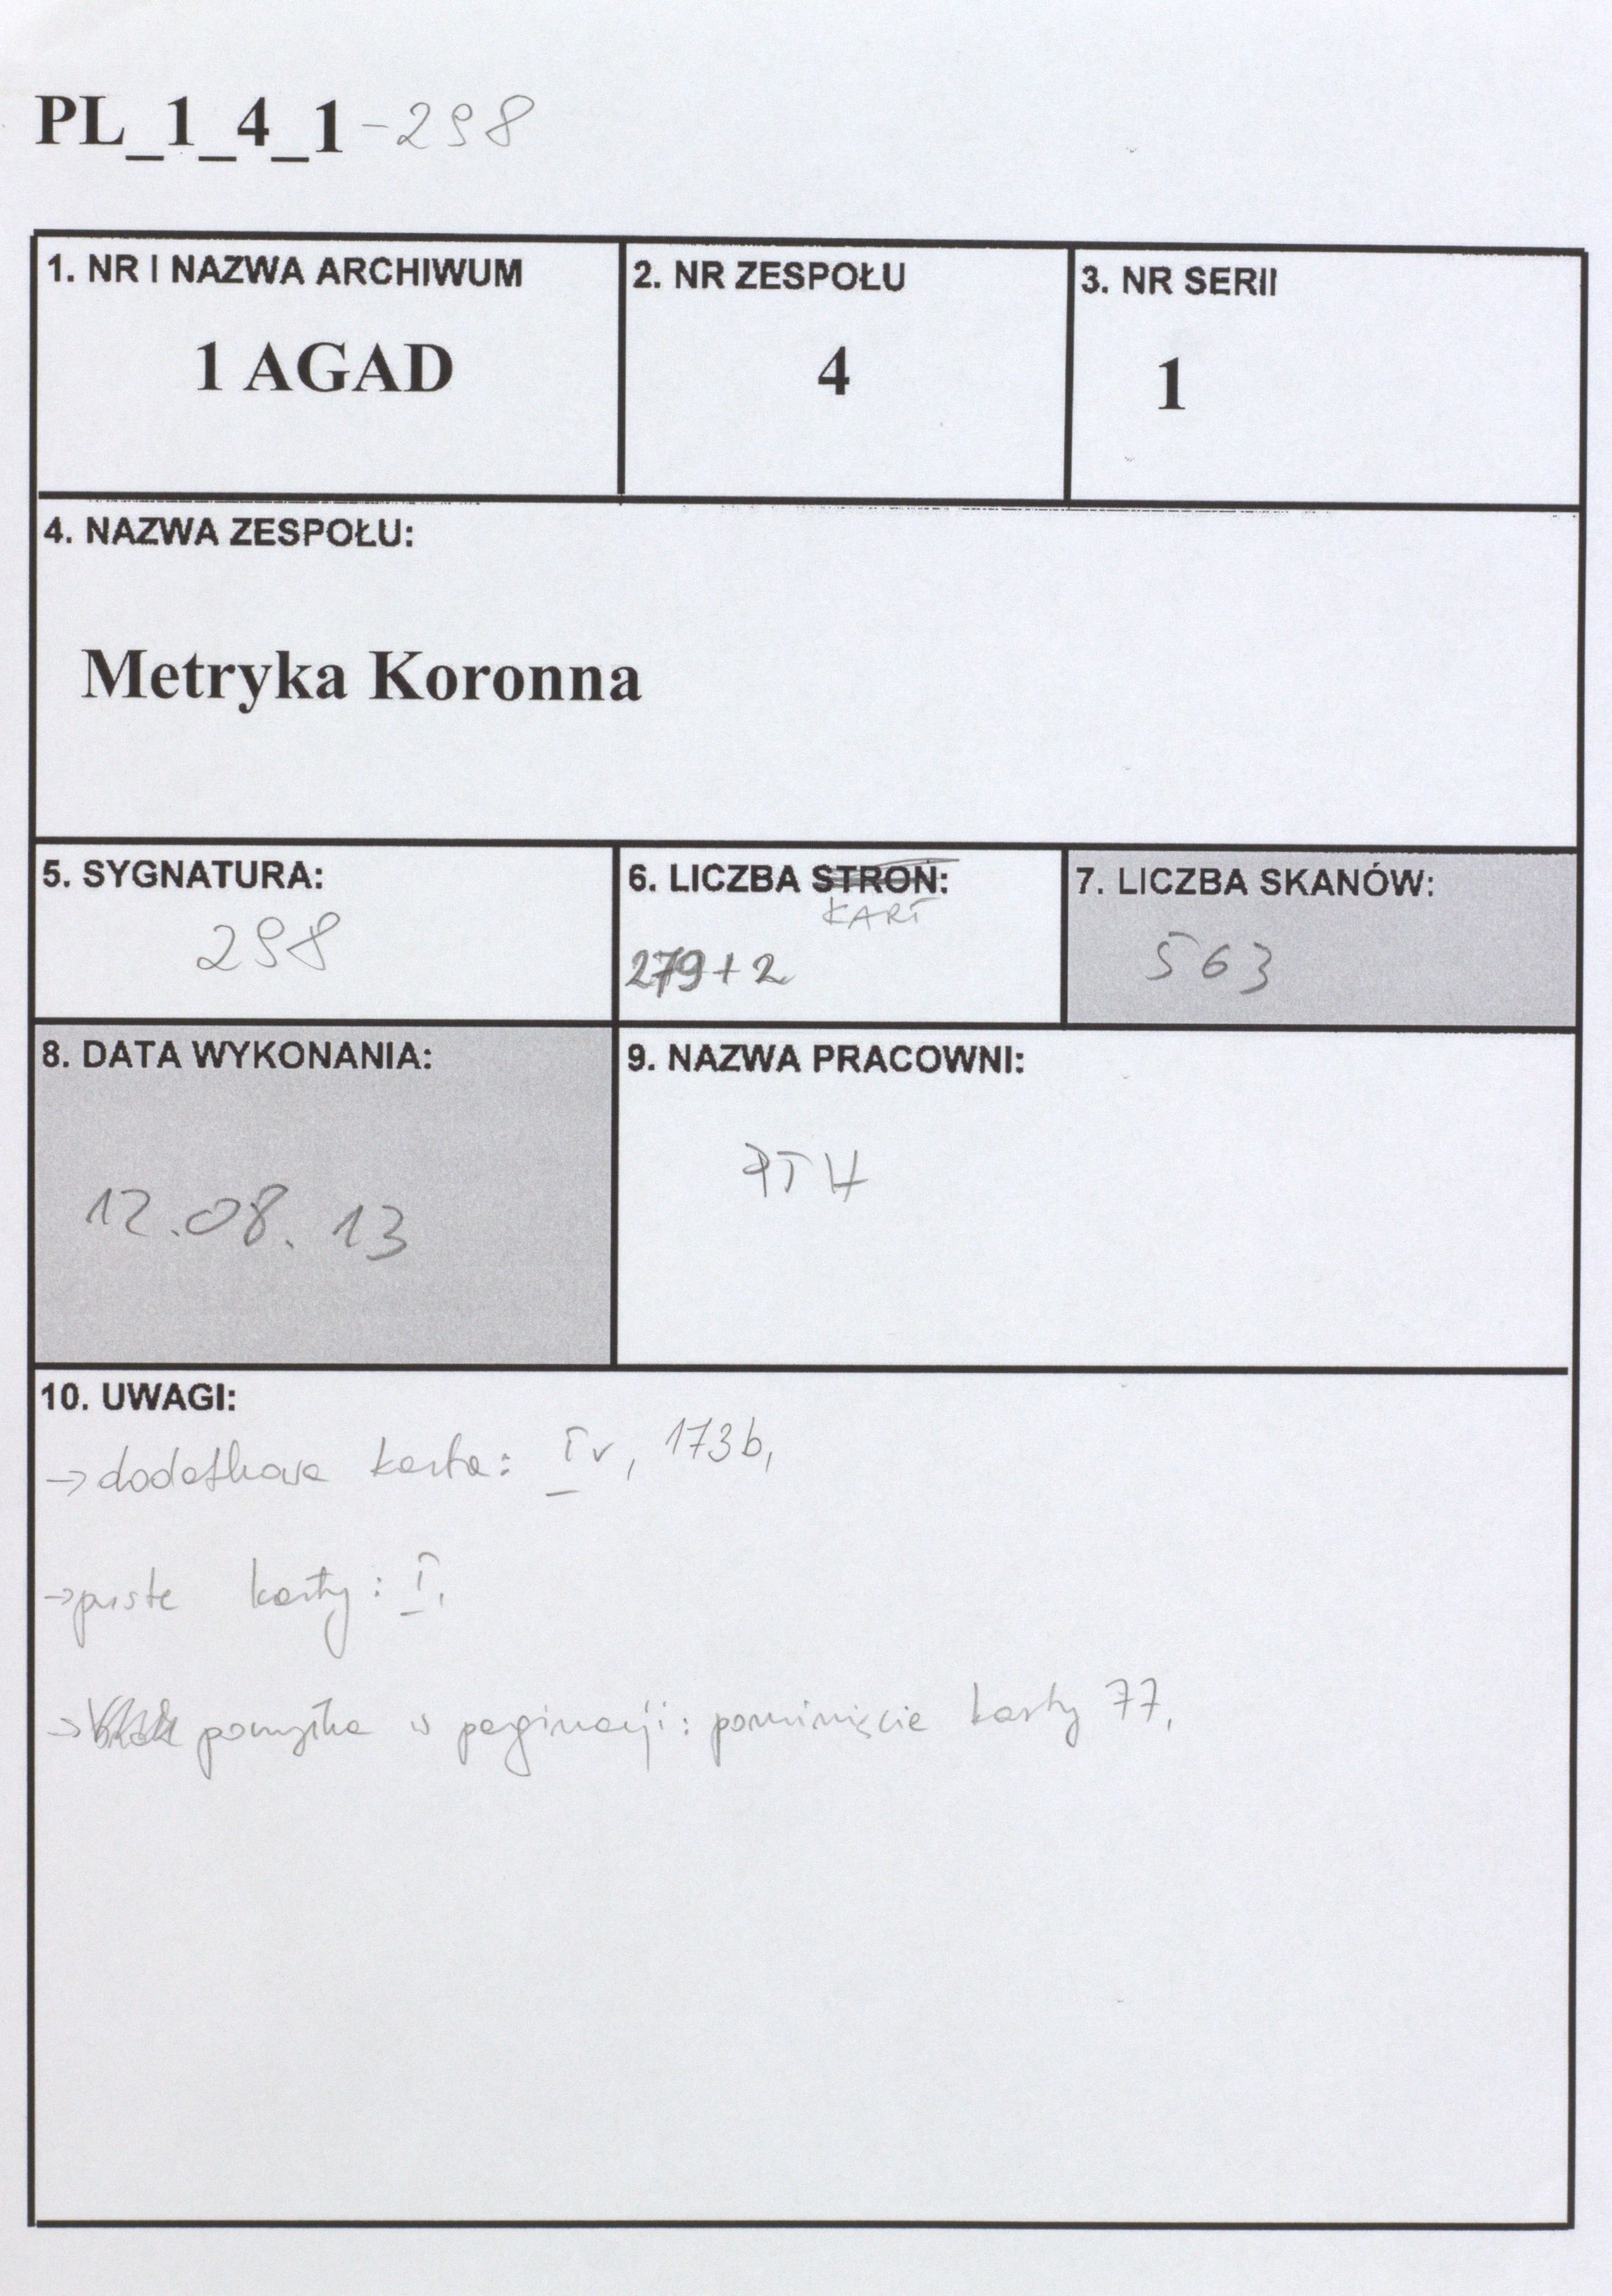 PL_1_4_1-298
1. NR I NAZWA ARCHIWUM
1 AGAD
2. NR ZESPOŁU
4
3. NR SERII
1
4. NAZWA ZESPOŁU:
Metryka Koronna
5. SYGNATURA:
298
6. LICZBA STRON:
KART
279+2
7. LICZBA SKANÓW:
563
8. DATA WYKONANIA:
12.08.13
9. NAZWA PRACOWNI:
PTH
10. UWAGI:
→ dodatkowa karta: I v, 173b,
→ puste karty: I,
→ pomyłka w paginacji: pominięcie karty 77,